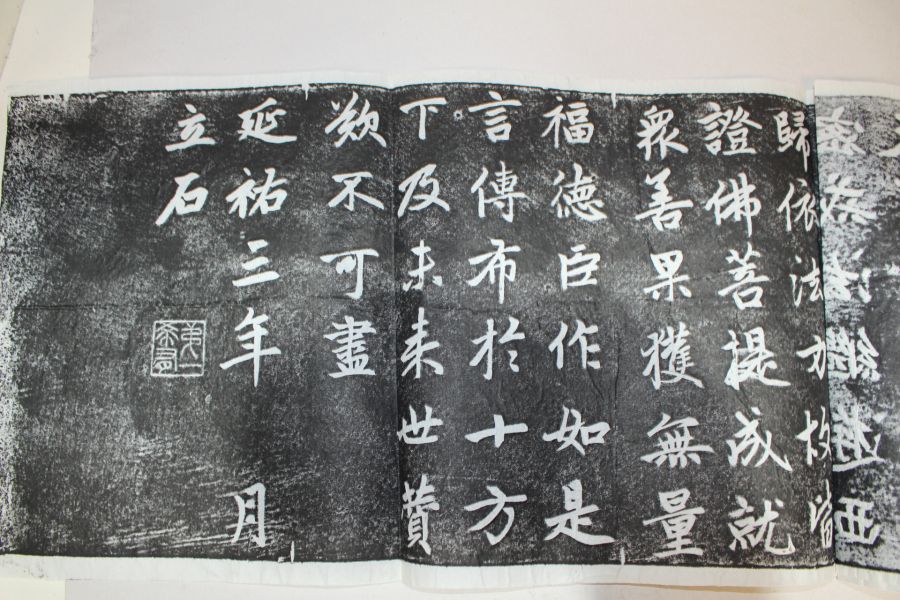 歸依法力故皆
證佛菩提成就
衆善果獲無量
福德臣作如是
言傳布於十方
下及未来世賛
歎不可盡
延祐三年 月
立石
第一希有